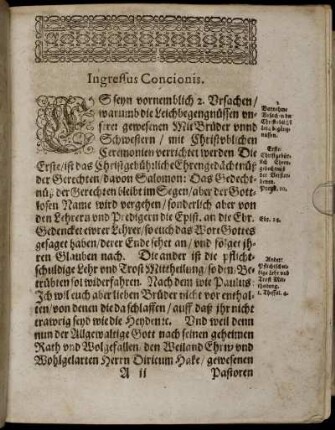 Ingressus Concionis.
ES seyn vornemblich 2. Vrsachen /
warumb die Leichbegengnüssen vn-
srer gewesenen MitBrüder vnnd
Schwestern / mit Christüblichen
Ceremonien verrichtet werden Die
Erste / ist das Christgebührlich Ehrengedächtnüs
der Gerechten / davon Salomon: Das Gedecht-
nüs der Gerechten bleibt im Segen / aber der Gott-
losen Name wird vergehen / sonderlich aber von
den Lehrern vnd Predigern die Epist. an die Ebr.
Gedencket ewrer Lehrer / so euch das Wort Gottes
gesaget haben / derer Ende sehet an / vnd folget ih-
ren Glauben nach. Die ander ist die pflicht-
schuldige Lehr vnd Trost Mittheilung / so den Be-
trübten sol widerfahren. Nach dem wie Paulus:
Ich wil euch aber lieben Brüder nicht vor enthal-
ten / von denen die da schlaffen / auff daß ihr nicht
trawrig seyd wie die Heyden ꝛc. Und weil denn
nun der Allgewaltige Gott nach seinen geheimen
Rath vnd Wolgefallen / den Weiland Ehrw vnd
Wohlgelarten Herrn Diricum Hake / gewesenen
A ii
Pastoren
2.
Vornehme
Vrsach
Erste
Ehren-
Proph. 10.
Ebr. 13.
Ander
Pflichtschul-
dige Lehr vnd
Trost Mit-
theilung.
1. Thessal. 4.